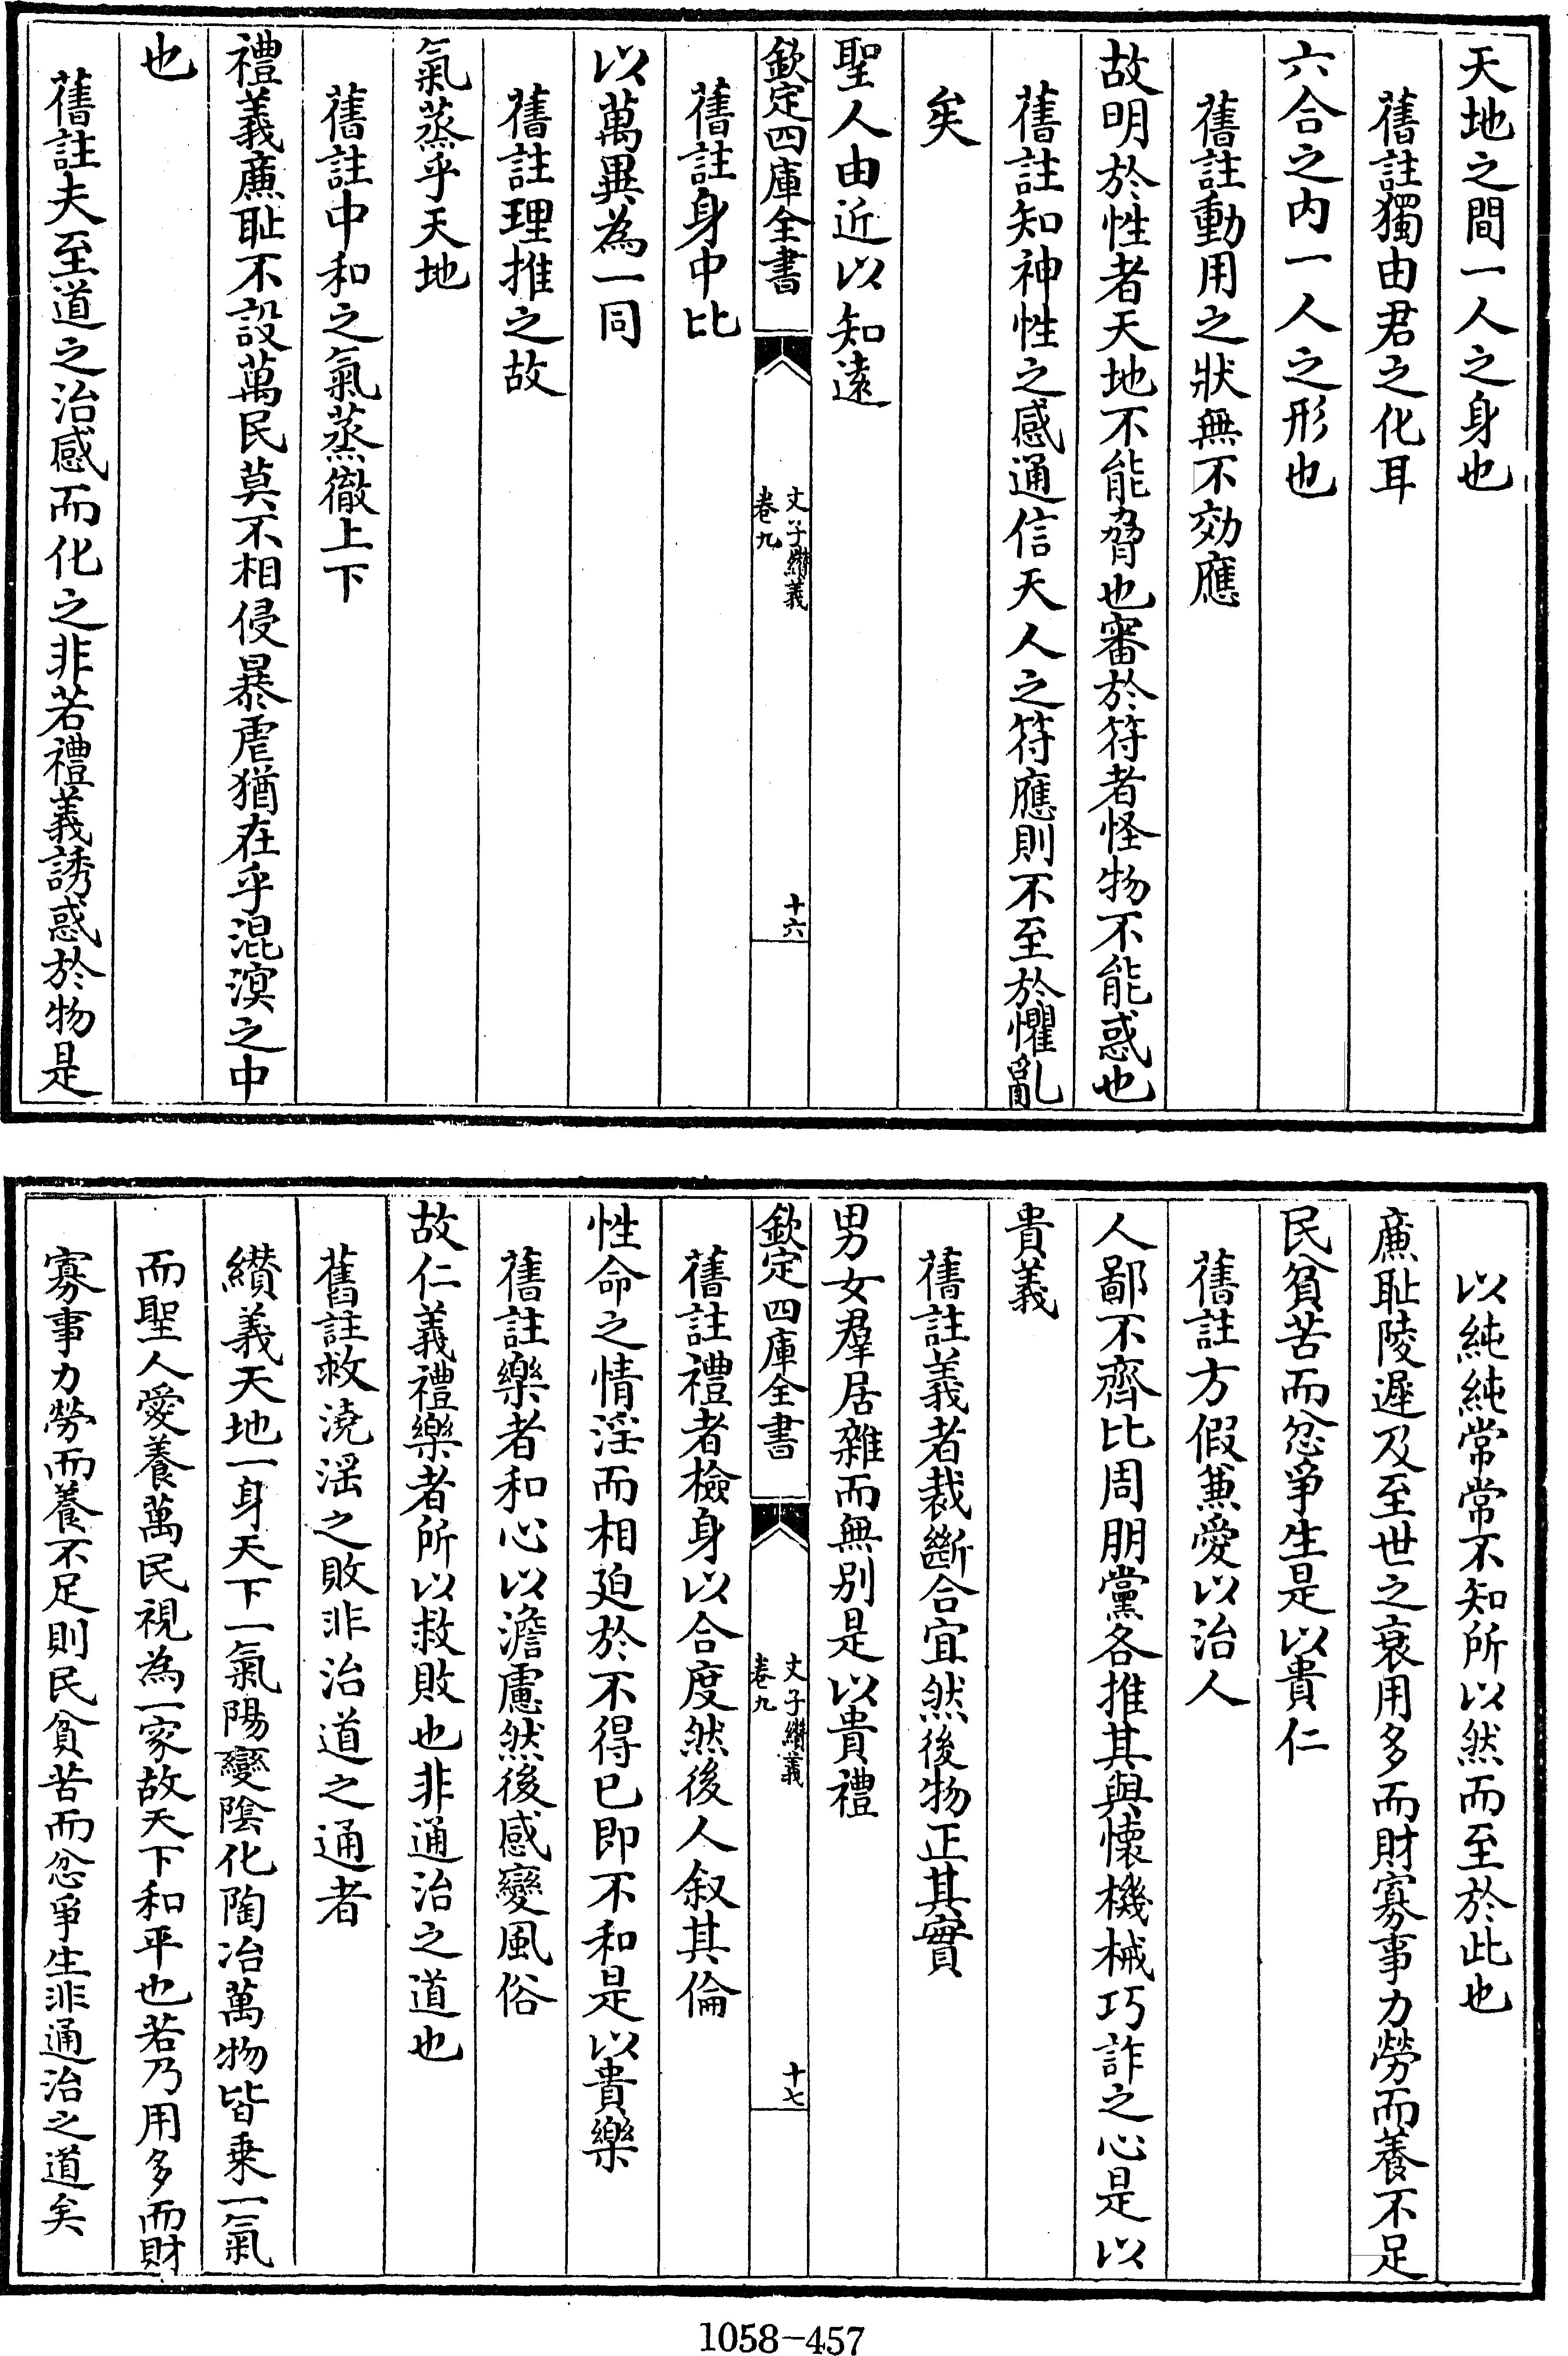 天地之間一人之身也
舊註獨由君之化耳
六合之內一人之形也
舊註動用之狀無不効應
故明於性者天地不能脅也審於符者怪物不能惑也
舊註知神性之感通信天人之符應則不至於懼亂
矣
聖人由近以知遠
欽定四庫全書
文子纘義
卷九
十六
舊註身中比
以萬異為一同
舊註理推之故
氣蒸乎天地
舊註中和之氣蒸徹上下
禮義廉耻不設萬民莫不相侵暴虐猶在乎混溟之中
也
舊註夫至道之治感而化之非若禮義誘惑於物是
以純純常常不知所以然而至於此也
廉耻陵遲及至世之衰用多而財寡事力勞而養不足
民貧苦而忿爭生是以貴仁
舊註方假兼愛以治人
人鄙不齊比周朋黨各推其與懷機械巧詐之心是以
貴義
舊註義者裁斷合宜然後物正其實
男女羣居雜而無別是以貴禮
欽定四庫全書
文子纘義
卷九
十七
舊註禮者檢身以合度然後人叙其倫
性命之情淫而相迫於不得已即不和是以貴樂
舊註樂者和心以澹慮然後感變風俗
故仁義禮樂者所以救敗也非通治之道也
舊註救澆淫之敗非治道之通者
纘義天地一身天下一氣陽變陰化陶冶萬物皆乗一氣
而聖人愛養萬民視為一家故天下和平也若乃用多而財
寡事力勞而養不足則民貧苦而忿爭生非通治之道矣
1058-457